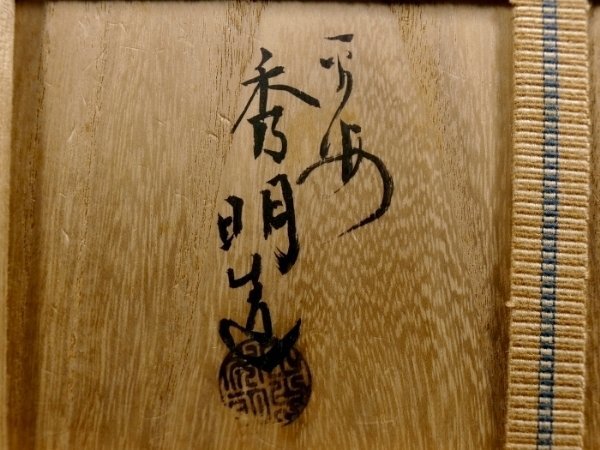 平安
秀明造